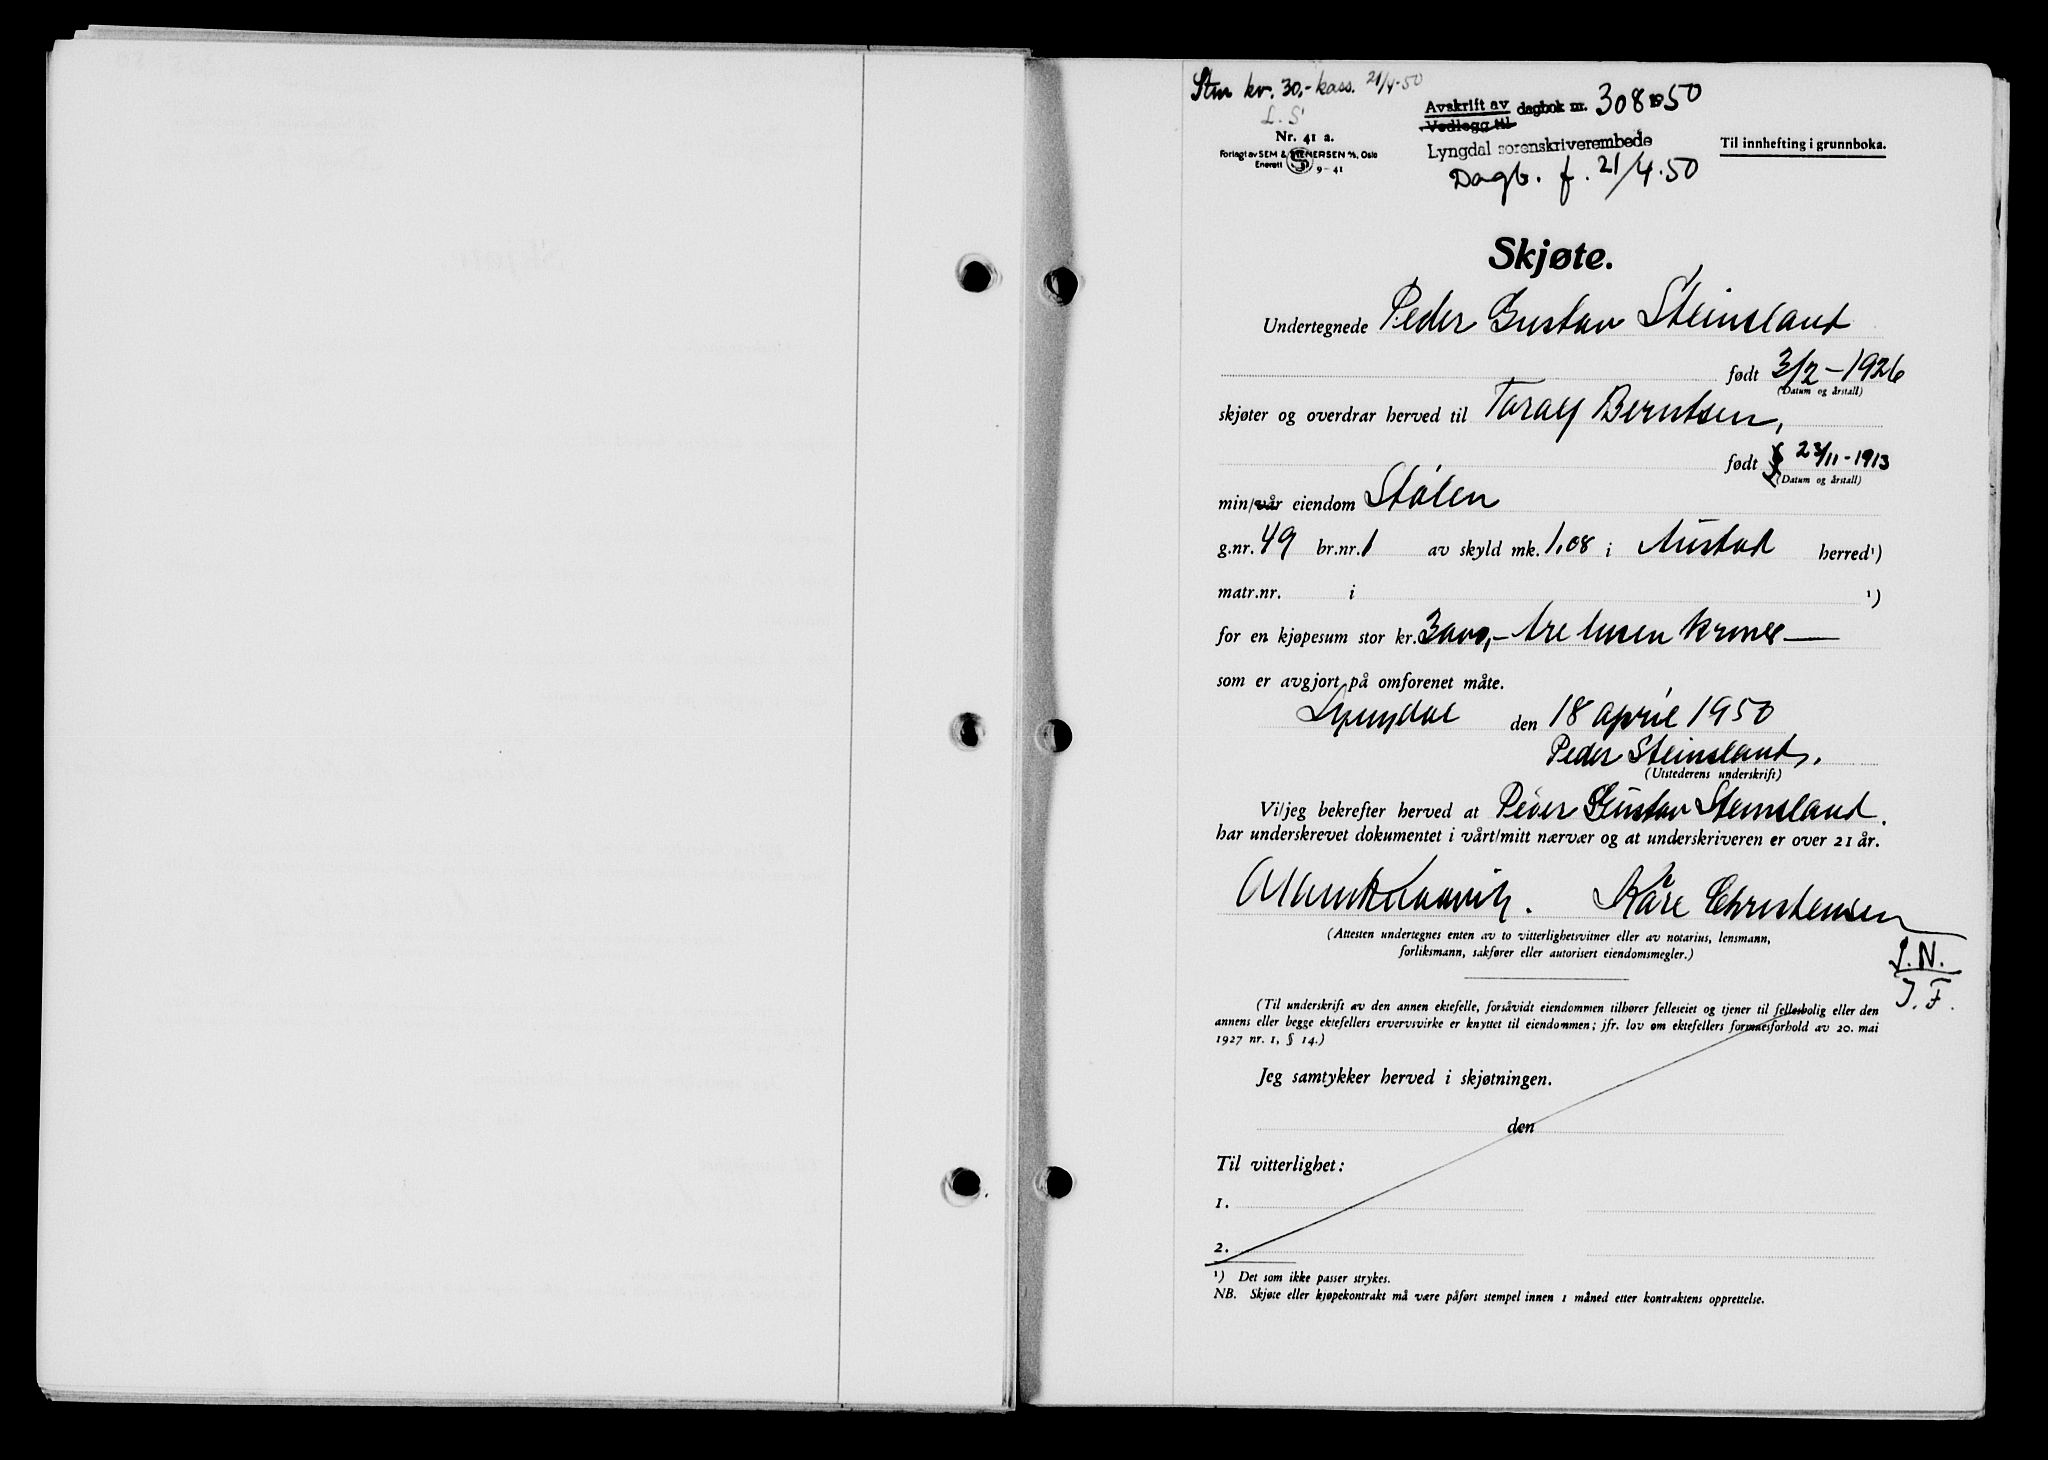 Stm kr. 30,- kass. 21/4-50
L. S
Nr. 41 a.
Forlagt av SEM & STENERSEN A/S, Oslo
Enerett 9-41
Avskrift av dagbok nr. 308 1950
Vedlegg til
Lyngdal sorenskriverembede
Dagb. f. 21/4.50
Til innhefting i grunnboka.
Skjøte.
Undertegnede Peder Gustav Steinsland
født 3/2-1926
(Datum og årstall)
skjøter og overdrar herved til Toralf Berntsen,
født 23/11-1913
(Datum og årstall)
min/vår eiendom Stølen
g.nr. 49 br.nr. 1 av skyld mk. 1,08 i Austad herred¹)
matr.nr. i ¹)
for en kjøpesum stor kr. 3000,- tre tusen kroner
som er avgjort på omforenet måte.
Lyngdal den 18 april 1950
Peder Steinsland.
(Utstederens underskrift)
Vi/jeg bekrefter herved at Peder Gustav Steinsland.
har underskrevet dokumentet i vårt/mitt nærvær og at underskriveren er over 21 år.
Kåre Christensen
(Attesten undertegnes enten av to vitterlighetsvitner eller av notarius, lensmann,
forliksmann, sakfører eller autorisert eiendomsmegler.)
L.N.
J.F.
(Til underskrift av den annen ektefelle, forsåvidt eiendommen tilhører felleseiet og tjener til fellesbolig eller den
annens eller begge ektefellers ervervsvirke er knyttet til eiendommen; jfr. lov om ektefellers formuesforhold av 20. mai
1927 nr. 1, § 14.)
Jeg samtykker herved i skjøtningen.
den
Til vitterlighet:
1.
2.
¹) Det som ikke passer strykes.
NB. Skjøte eller kjøpekontrakt må være påført stempel innen 1 måned etter kontraktens opprettelse.